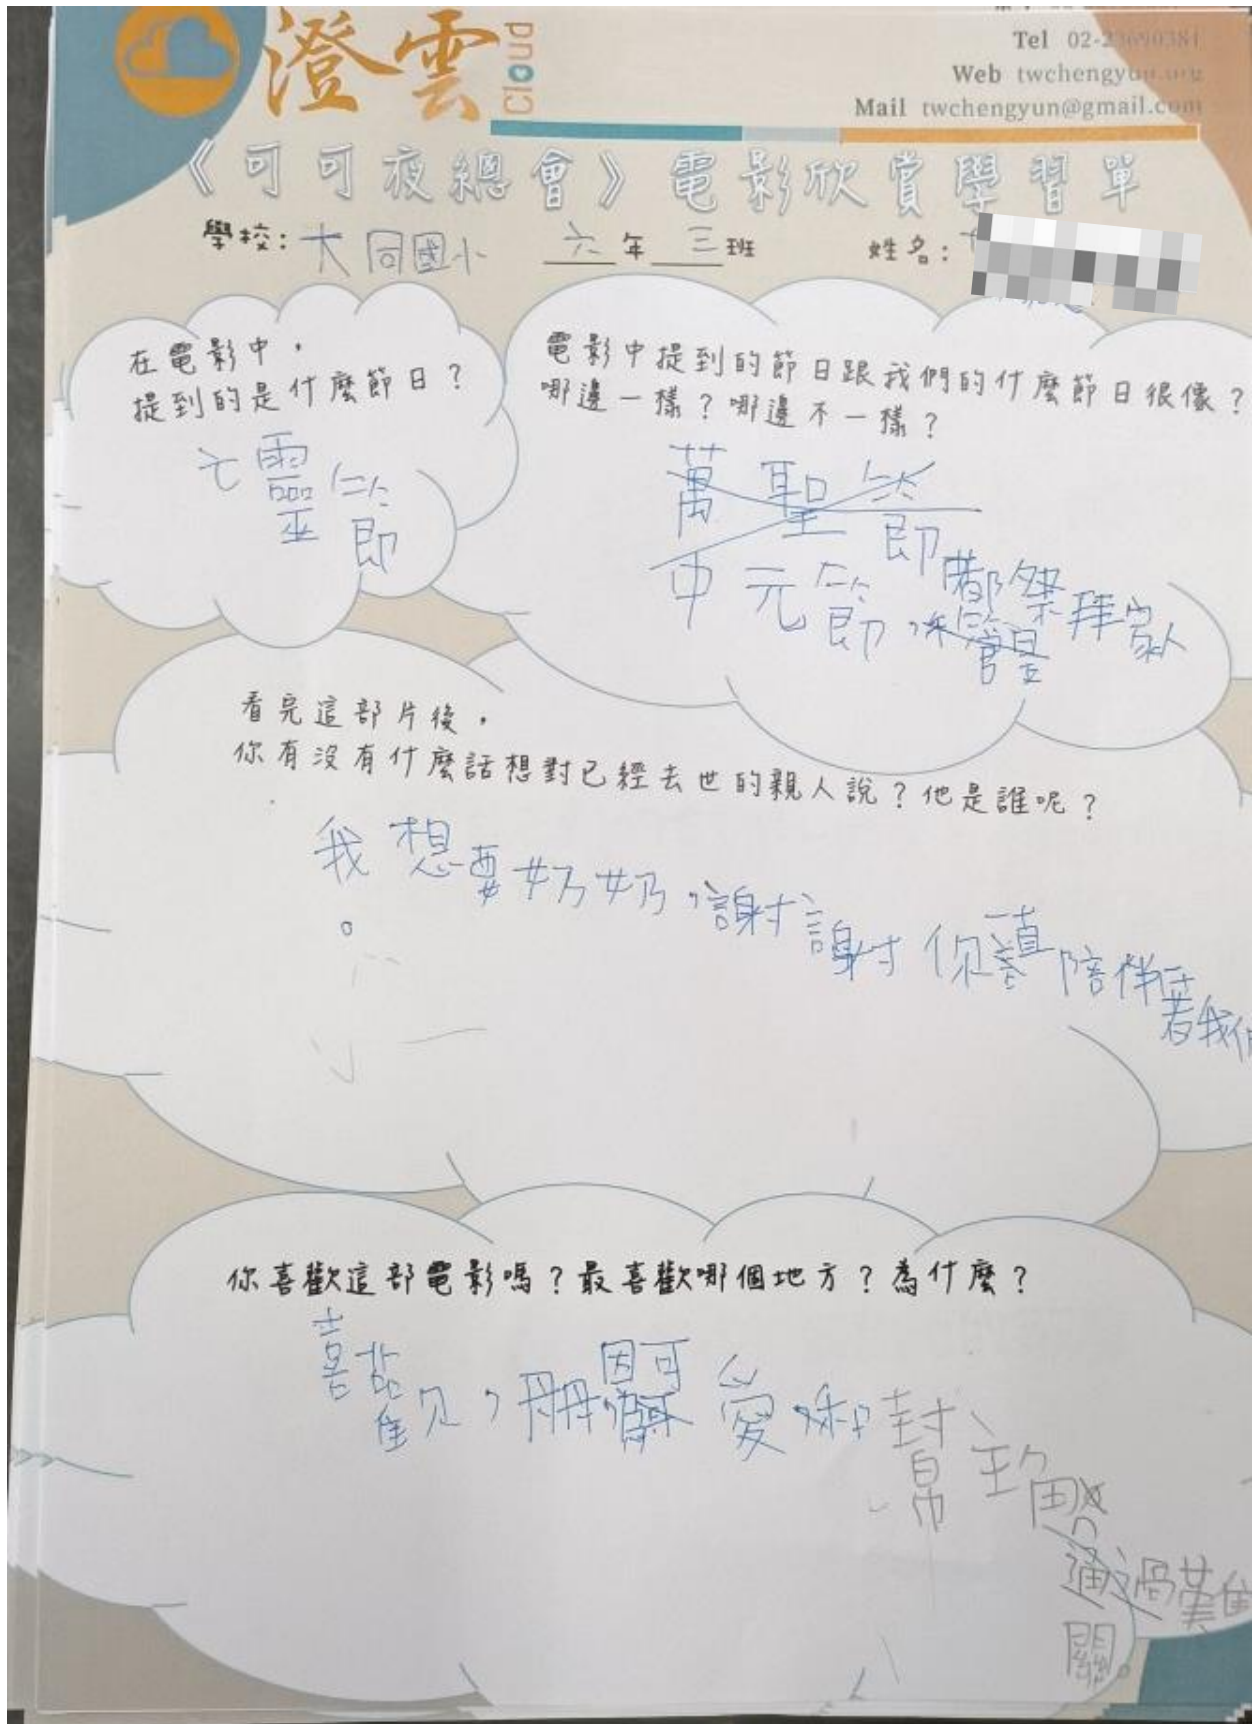 澄雲
Cloud
Tel 02-23690381
Web twchengyun.org
Mail twchengyun@gmail.com
《可可夜總會》電影欣賞學習單
學校：大同國小 六年三班 姓名：
在電影中，
提到的是什麼節日？
亡靈節
電影中提到的節日跟我們的什麼節日很像？
哪邊一樣？哪邊不一樣？
萬聖節
中元節，都祭拜家人
看完這部片後，
你有沒有什麼話想對已經去世的親人說？他是誰呢？
我想要奶奶，謝謝你一直陪伴著我們
。
你喜歡這部電影嗎？最喜歡哪個地方？為什麼？
喜歡，因可愛，和幫主角
通過難
關。